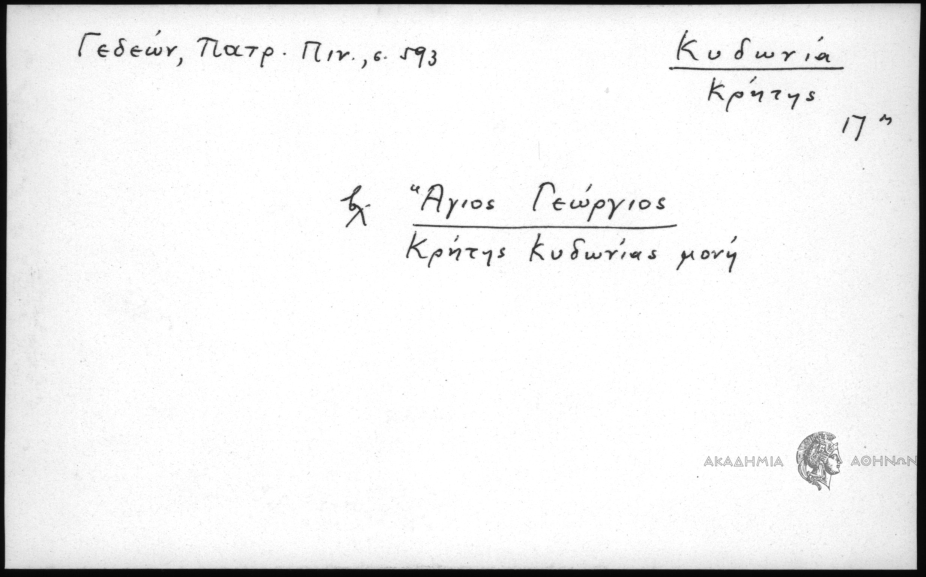 Γεδεών, Πατρ. Πιν., σ. 593
Κυδωνία
Κρήτης
17 η
βλ. Ἅγιος Γεώργιος
Κρήτης Κυδωνίας μονή
ΑΚΑΔΗΜΙΑ ΑΘΗΝΩΝ